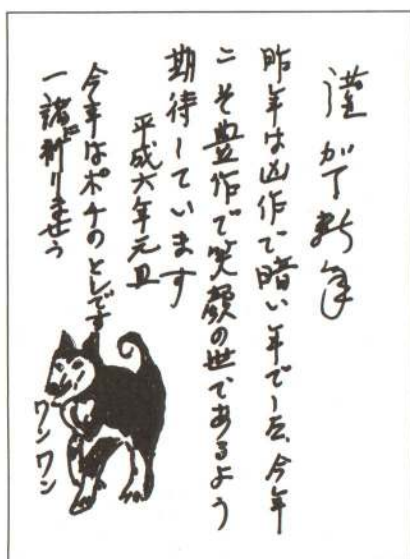 謹カ丁新年
昨年は凶作で暗い年でした、今年
こそ豊作で笑顔の世であるよう
期待しています
平成六年元旦
今年はポチのとしです
一諸に祈りませう
ワンワン